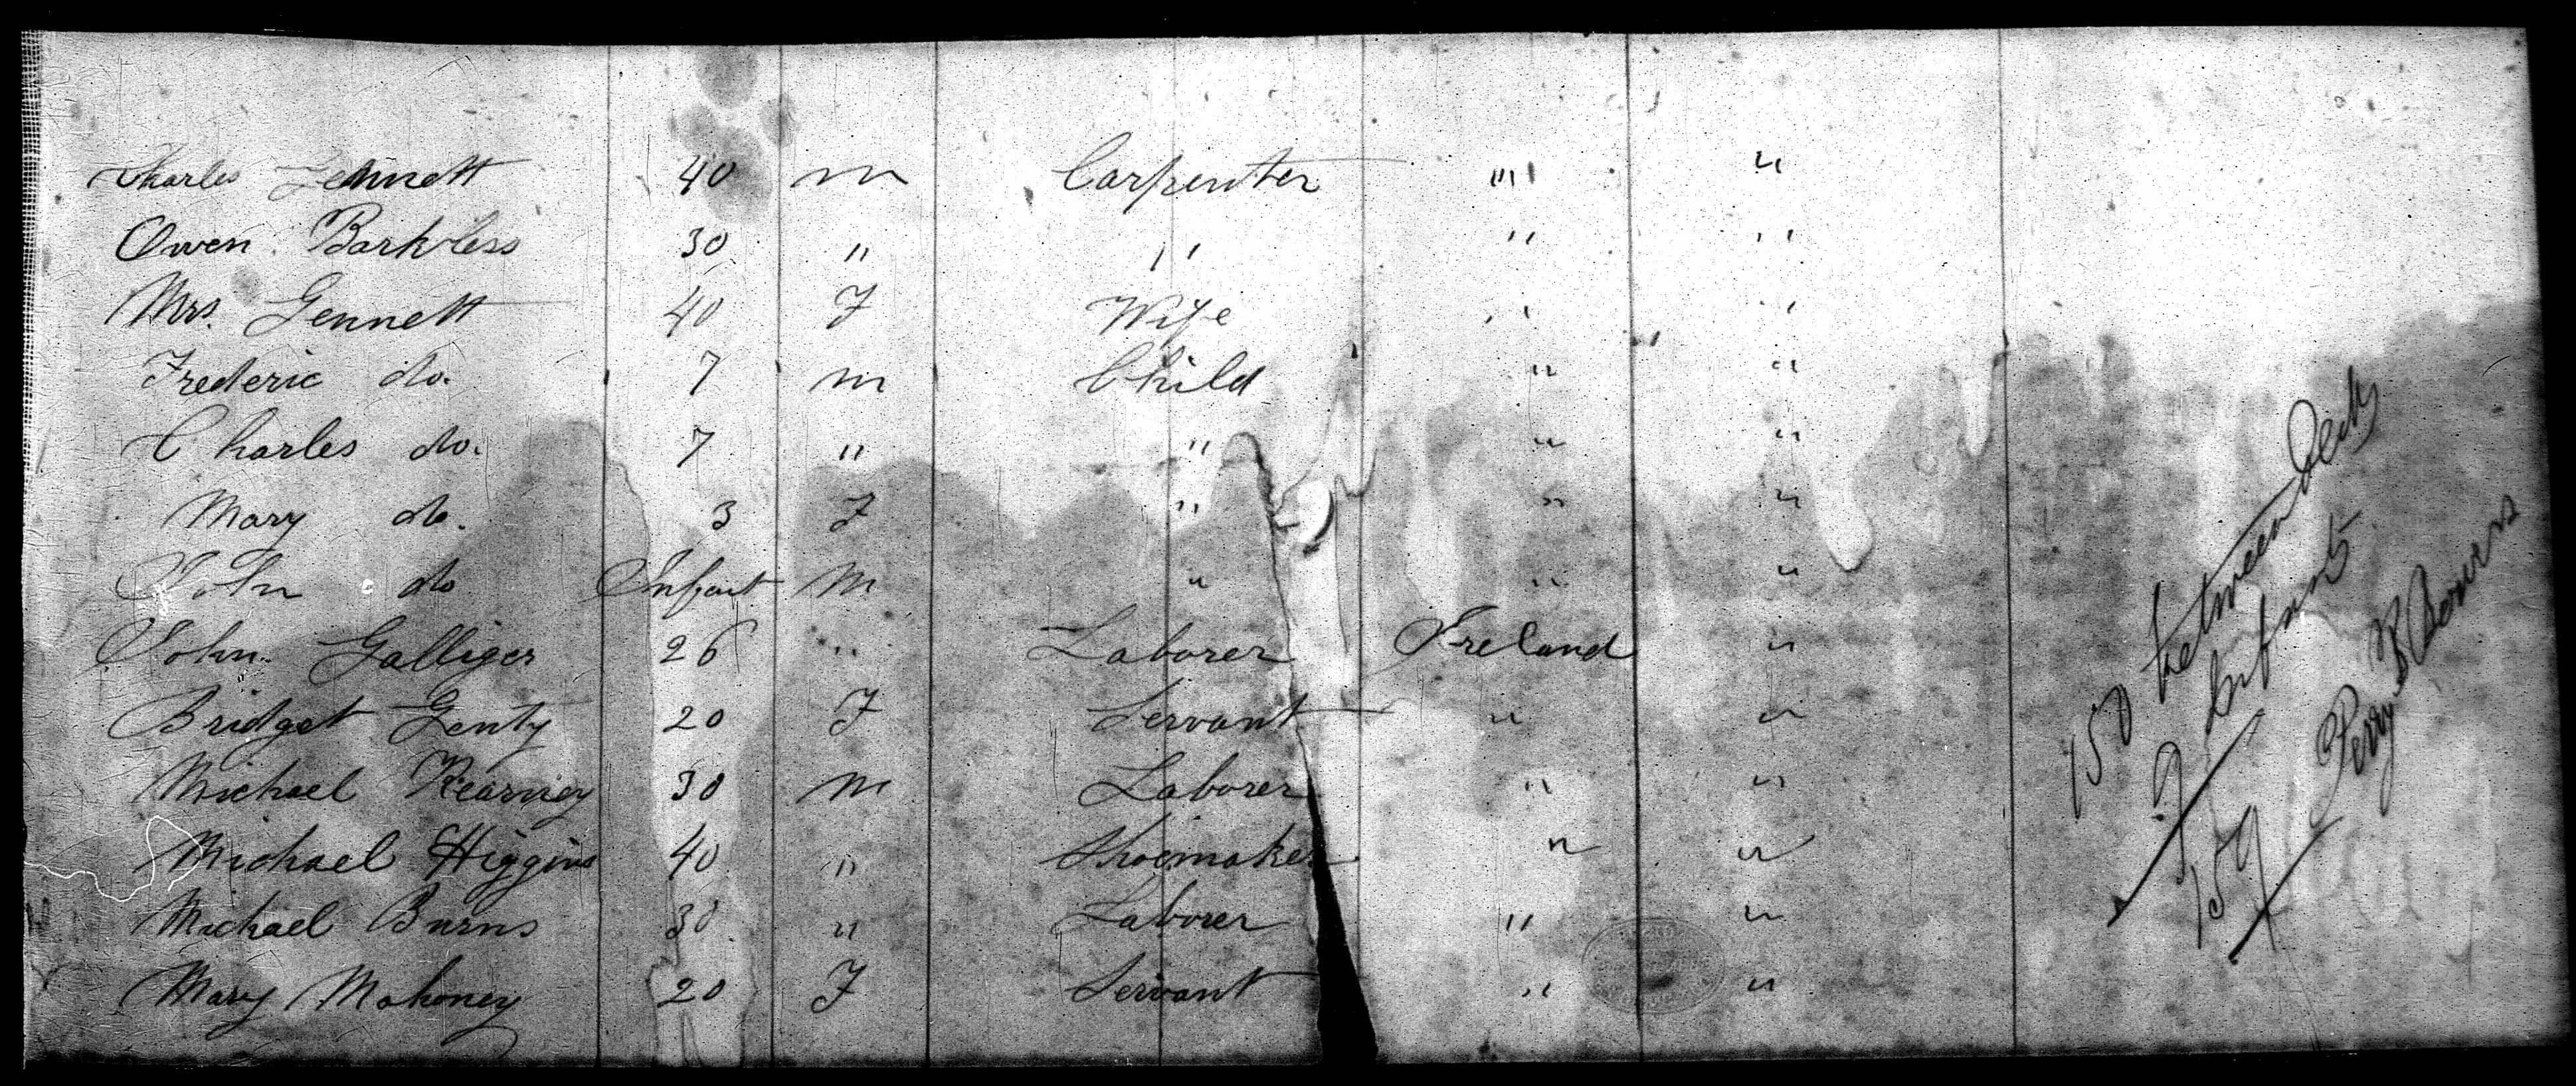 Charles Gennett 40 m Carpenter " "
Owen Barkless 30 " " " "
Mrs. Gennett 40 F Wife " "
Frederic do. 7 m Child " "
Charles do. 7 " " " "
Mary do. 3 F " " "
John do Infant m " " "
John Galliger 26 " Laborer Ireland "
Bridget Genty 20 F Servant " "
Michael Kearney 30 m Laborer " "
Michael Higgins 40 " Shoemaker " "
Michael Burns 30 " Laborer " "
Mary Mahoney 20 F Servant " "
150 between Decks
9 Infants
159
Perry Bowers